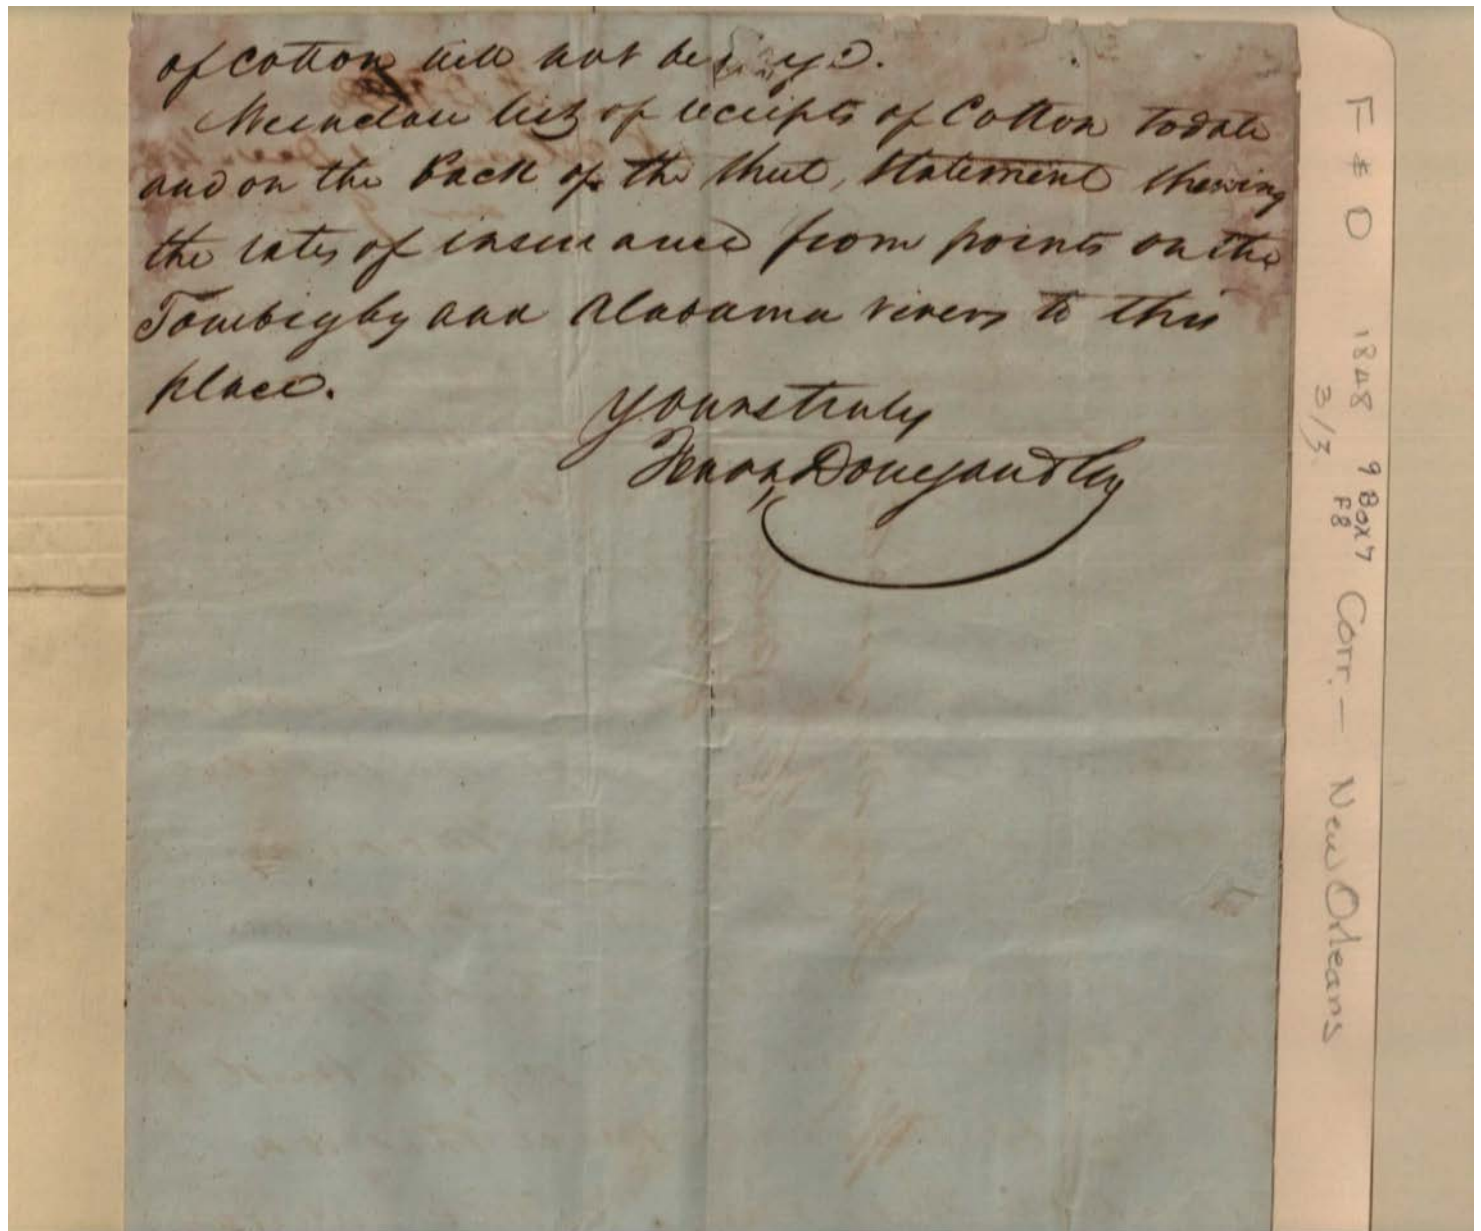 of cotton will not be
We enclose list of receipts of Cotton todate
and on the back of the sheet, statement shewing
the rates of insurance from points on the
Tombigby and Alabama rivers to this
place.
Yours truly
Fearn Donegan & Co
F & D 1848 9 Box 7 Corr. — New Orleans
3/3 F8